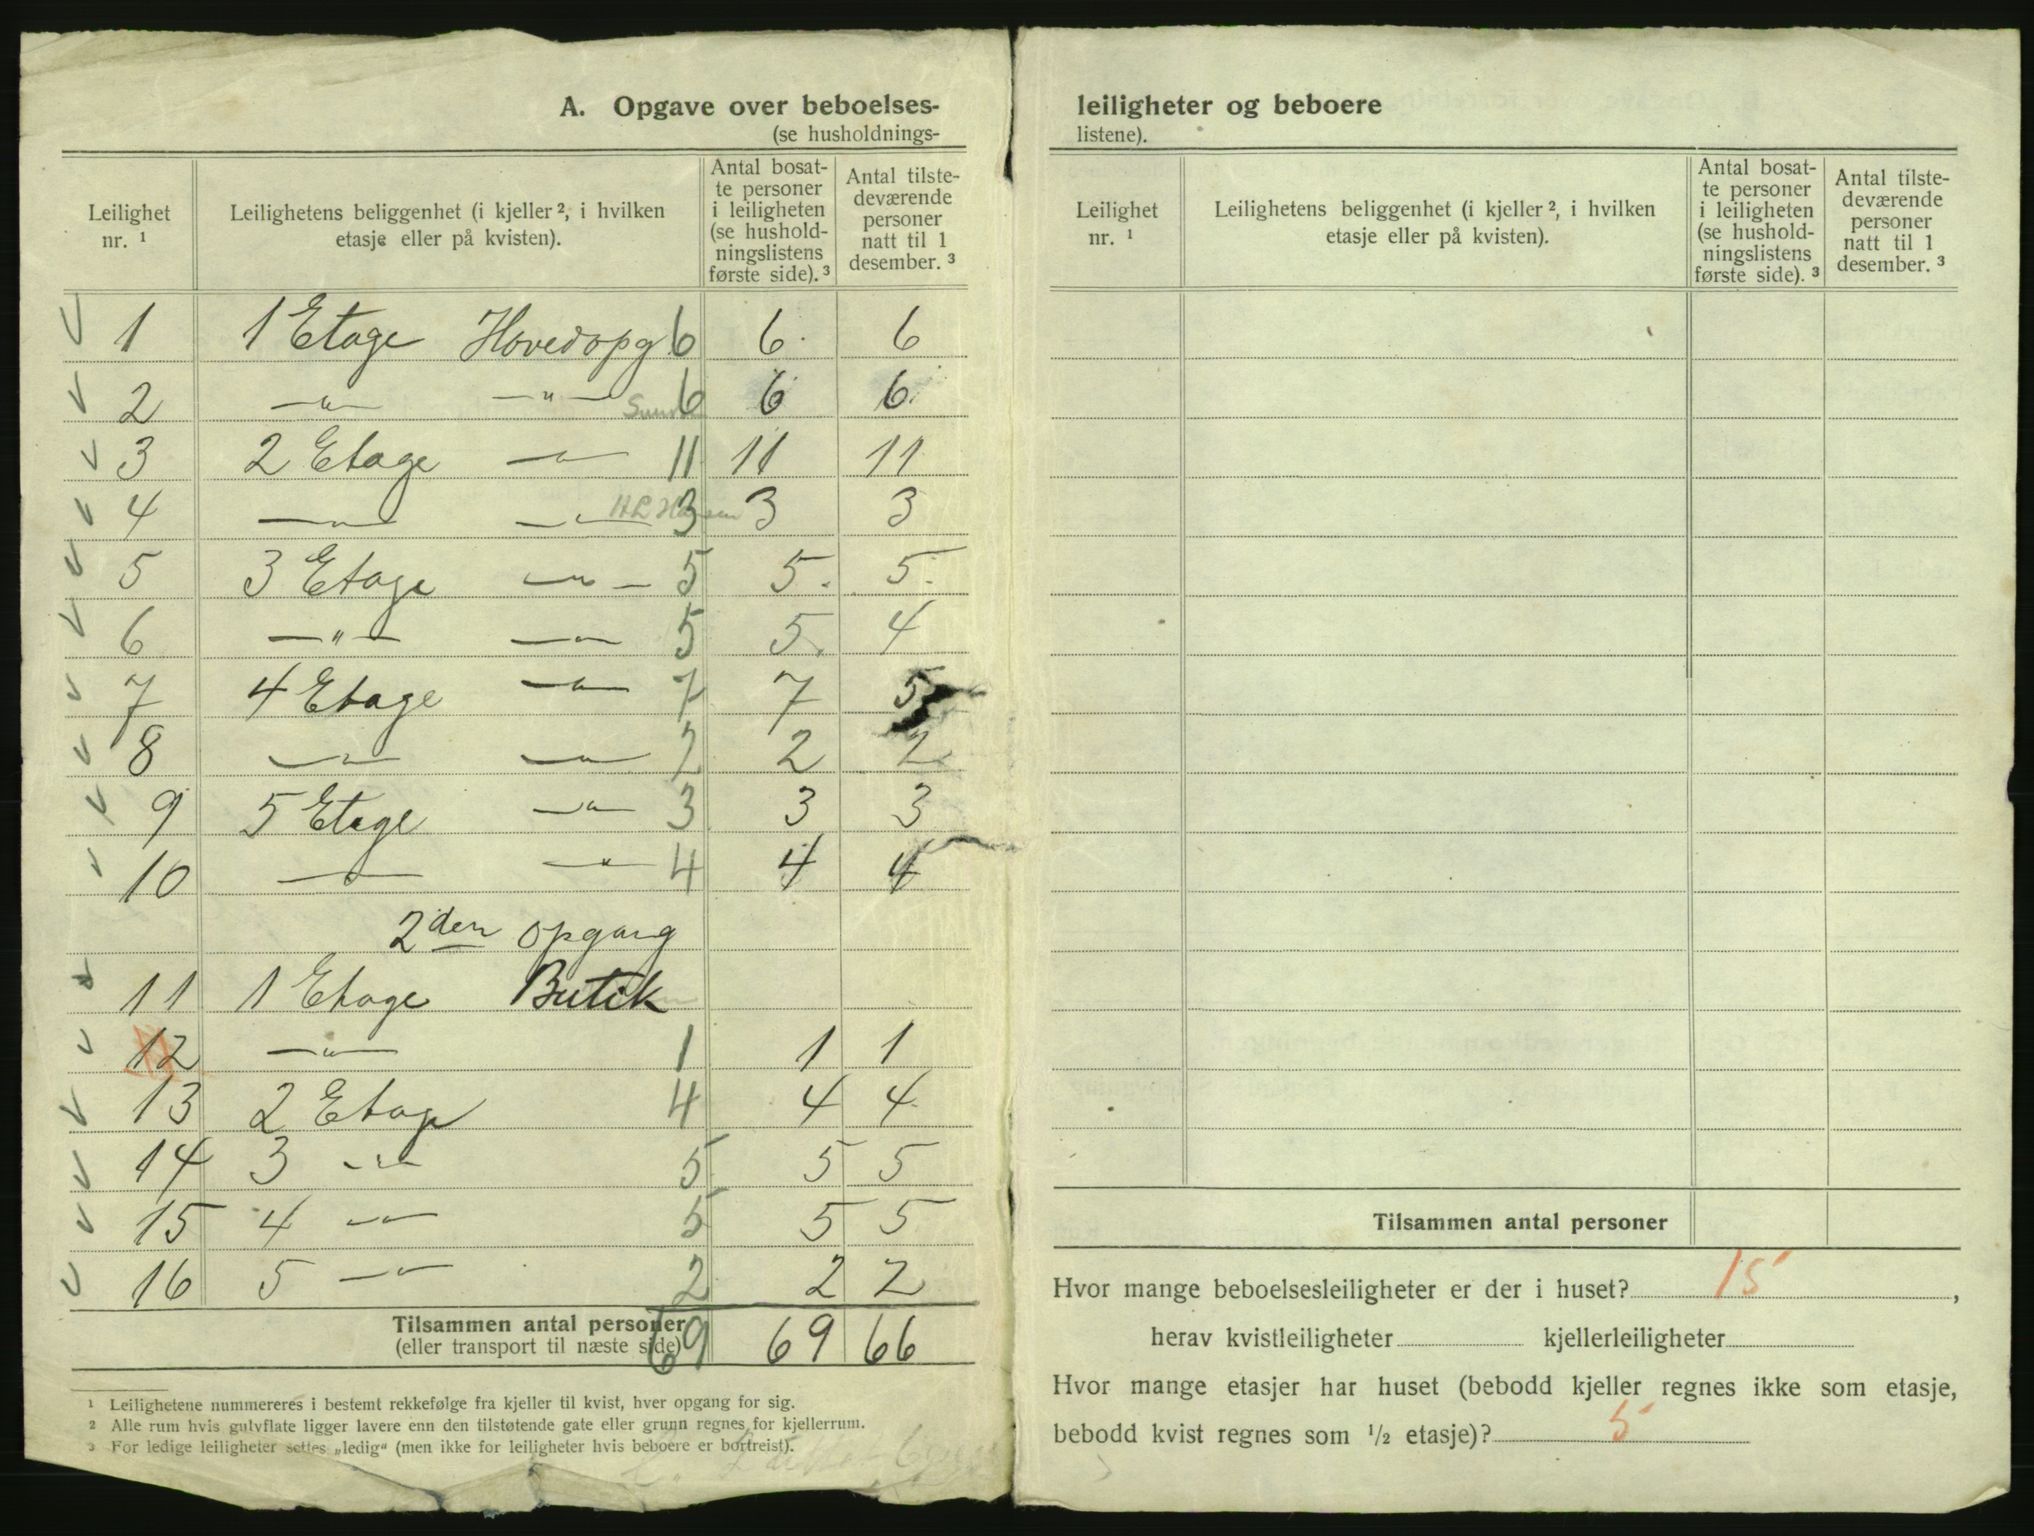 A. Opgave over beboelses-
(se husholdnings-
Leilighet nr. ¹
Leilighetens beliggenhet (i kjeller ², i hvilken etasje eller på kvisten).
Antal bosat-te personer i leiligheten (se hushold-ningslistens første side). ³
Antal tilste-deværende personer natt til 1 desember. ³
1 1 Etage Hovedopg 6 6 6
2 —"— —"— 6 6 6
3 2 Etage —"— 11 11 11
4 —"— —"— 3 3 3
5 3 Etage —"— 5 5. 5.
6 —"— —"— 5 5. 4
7 4 Etage —"— 7 7 5
8 —"— —"— 2 2 2
9 5 Etage —"— 3 3 3
10 —"— —"— 4 4 4
2den opgang
11 1 Etage Butik
12 —"— 1 1 1
13 2 Etage 4 4 4
14 3 —"— 5 5 5
15 4 —"— 5 5 5
16 5 —"— 2 2 2
Tilsammen antal personer
(eller transport til næste side) 69 69 66
¹ Leilighetene nummereres i bestemt rekkefølge fra kjeller til kvist, hver opgang for sig.
² Alle rum hvis gulvflate ligger lavere enn den tilstøtende gate eller grunn regnes for kjellerrum.
³ For ledige leiligheter settes „ledig“ (men ikke for leiligheter hvis beboere er bortreist).
leiligheter og beboere
listene).
Leilighet nr. ¹
Leilighetens beliggenhet (i kjeller ², i hvilken etasje eller på kvisten).
Antal bosat-te personer i leiligheten (se hushold-ningslistens første side). ³
Antal tilste-deværende personer natt til 1 desember. ³
Tilsammen antal personer
Hvor mange beboelsesleiligheter er der i huset? 15,
herav kvistleiligheter kjellerleiligheter
Hvor mange etasjer har huset (bebodd kjeller regnes ikke som etasje,
bebodd kvist regnes som ½ etasje)? 5